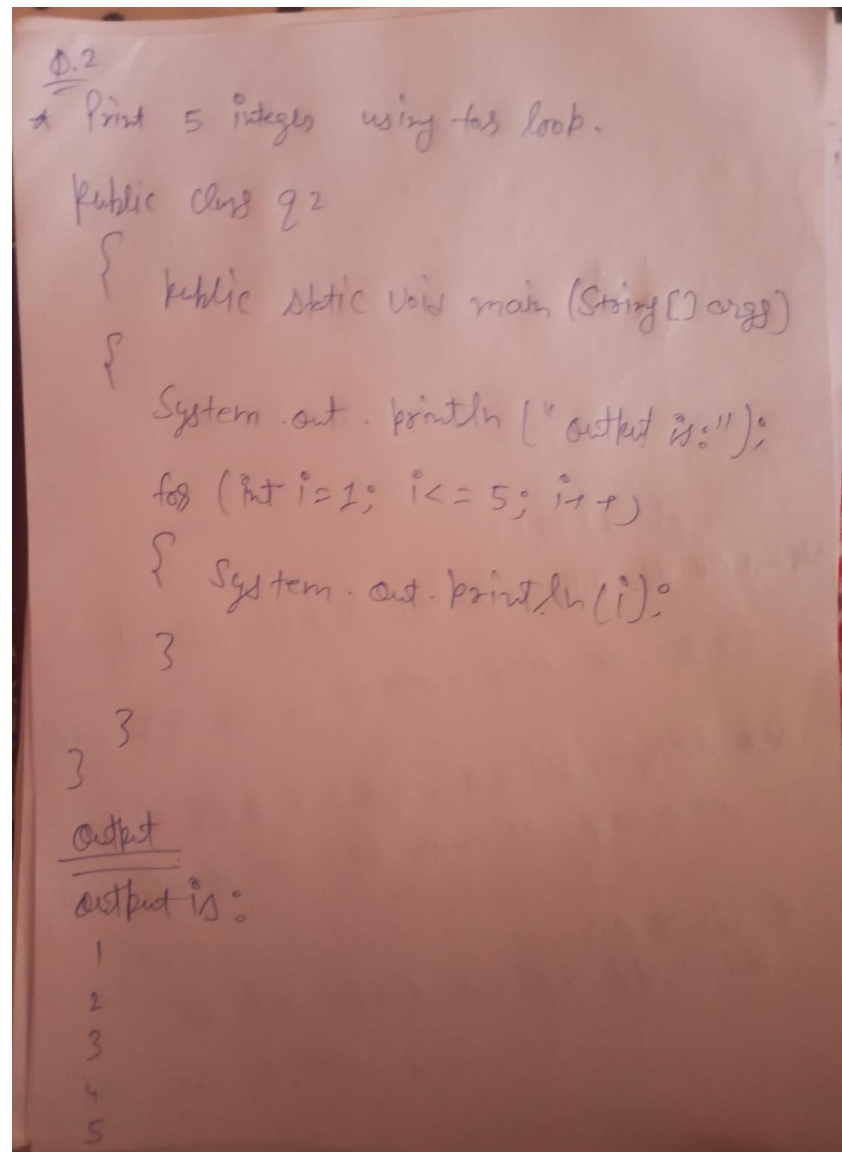 Q.2
* Print 5 integers using for loop.
Public class q2
{
public static void main (String [] args)
{
System.out.println ("output is:");
for (int i=1; i<=5; i++)
{ System.out.println(i);
}
}
}
output
output is:
1
2
3
4
5